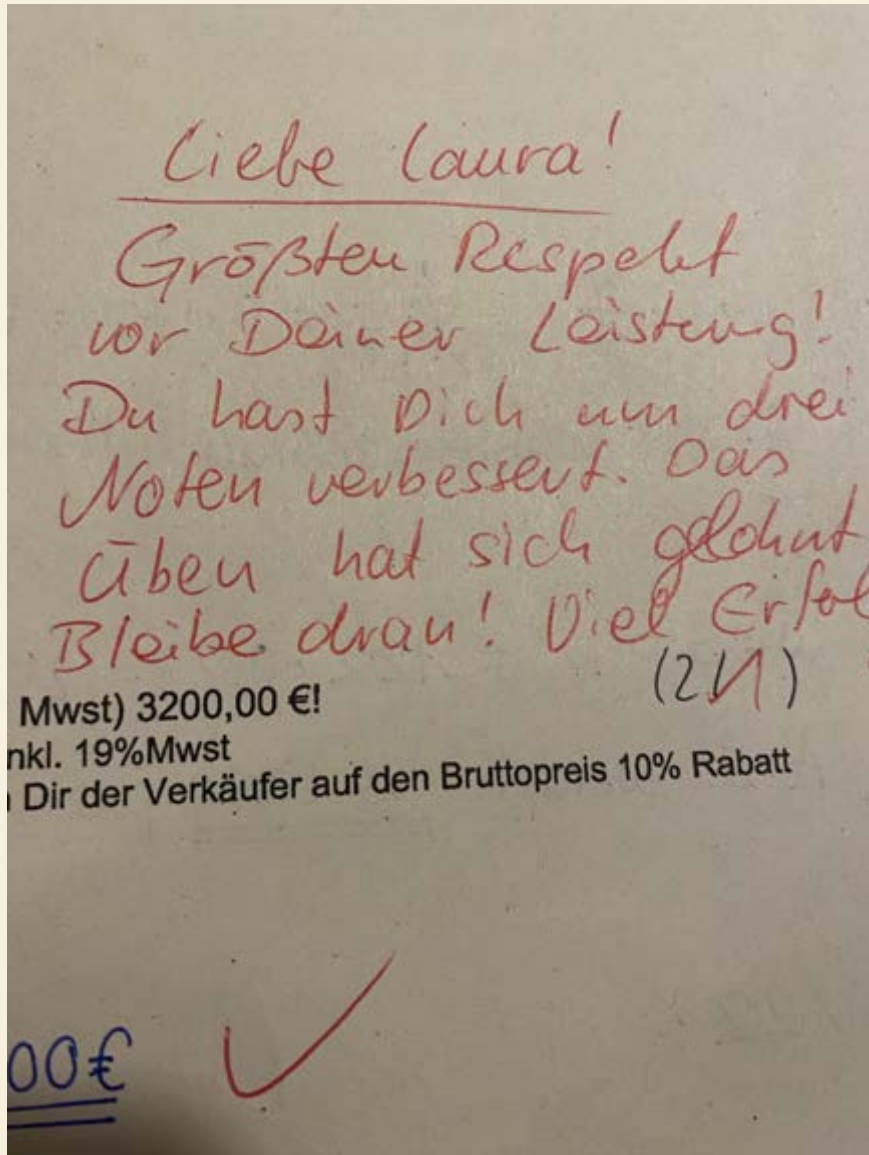 Liebe Laura!
Größten Respekt
vor Deiner Leistung!
Du hast Dich um drei
Noten verbessert. Das
Üben hat sich gelohnt
Bleibe dran! Viel Erfol
(2/1)
Mwst) 3200,00 €!
nkl. 19%Mwst
Dir der Verkäufer auf den Bruttopreis 10% Rabatt
00€